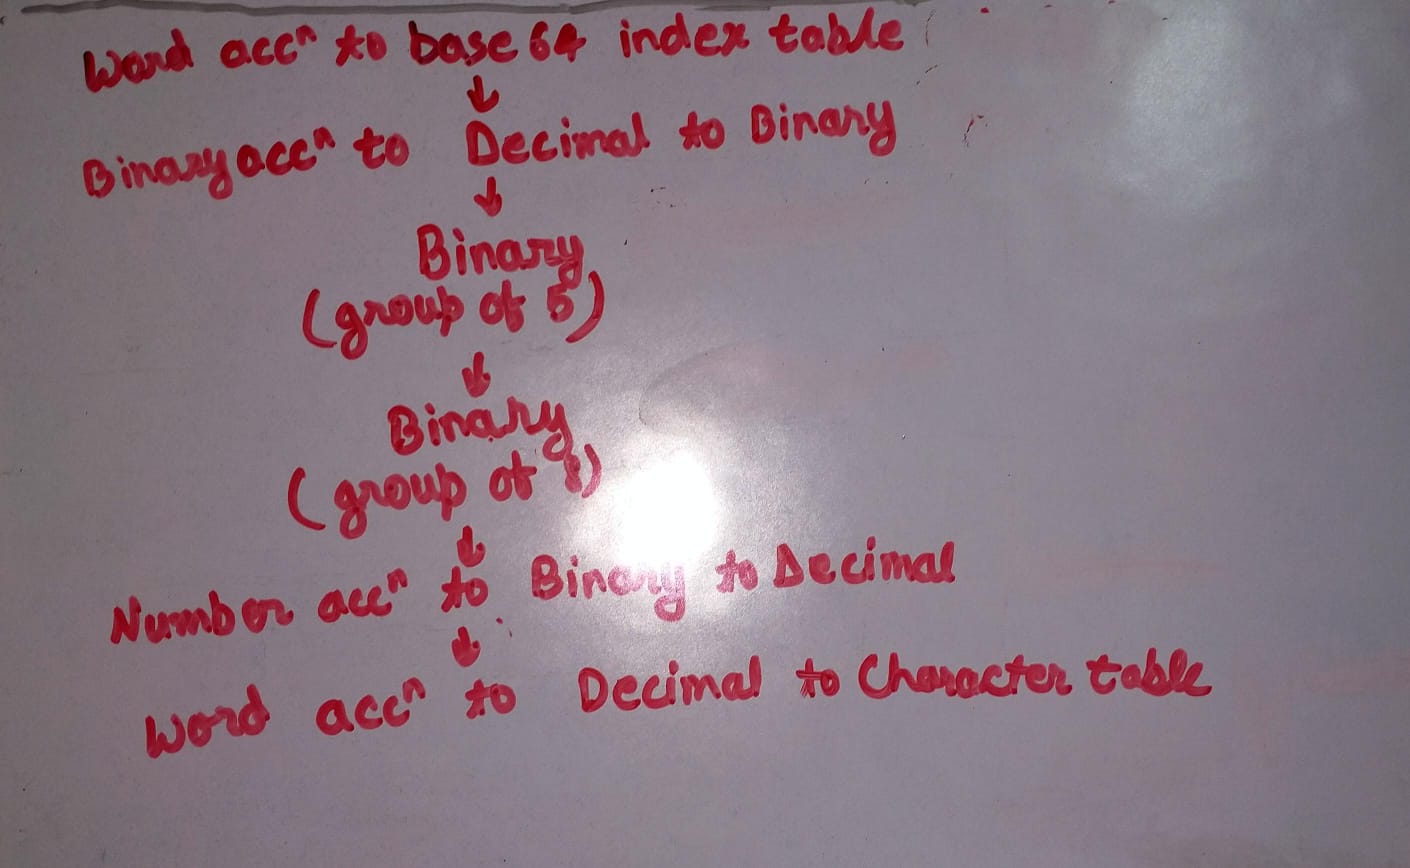 Word accⁿ to base 64 index table
↓
Binary accⁿ to Decimal to Binary
↓
Binary
(group of 5)
↓
Binary
(group of 8)
↓
Number accⁿ to Binary to Decimal
↓
Word accⁿ to Decimal to Character table